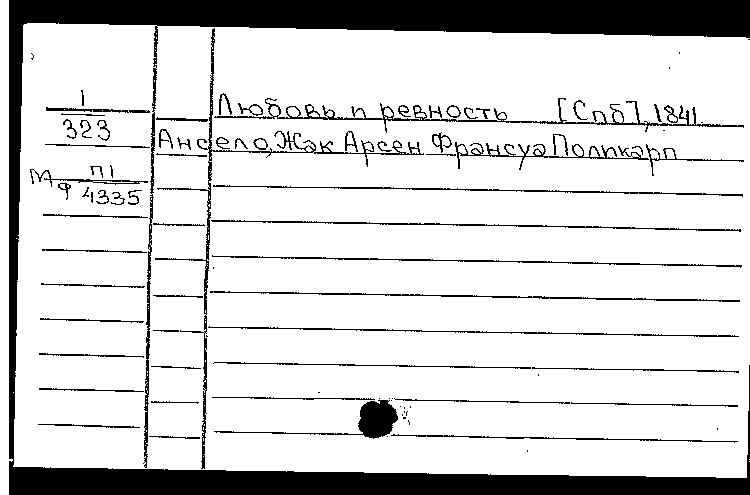 1
323
Любовь и ревность [Спб], 1841.
Ансело, Жак Арсен Франсуа Поликарп
Мф П1
4335